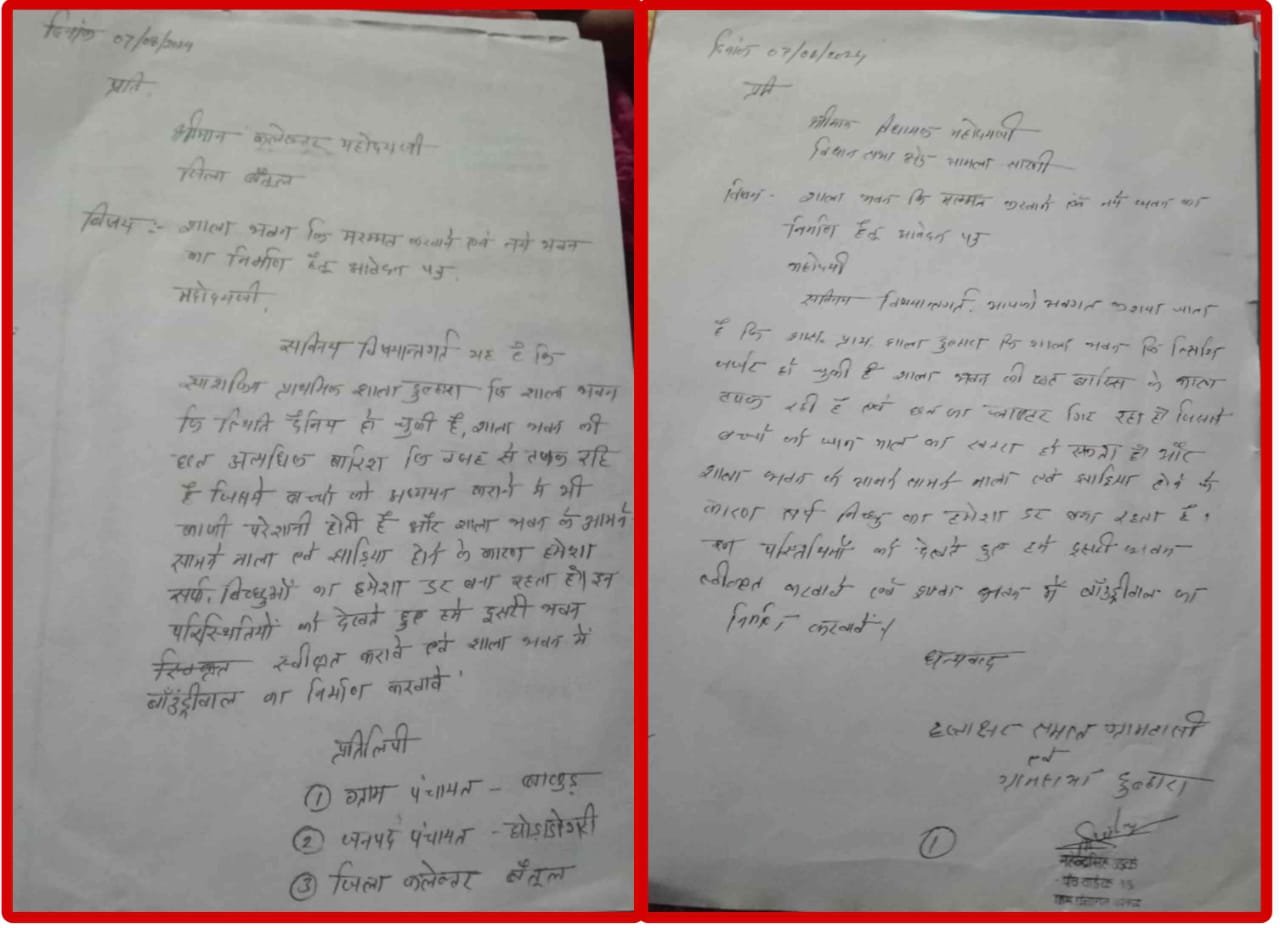 दिनांक 07/08/2024
प्रति,
श्रीमान कलेक्टर महोदयजी
जिला बैतूल
विषय :- शाला भवन कि मरम्मत करवाने एवं नये भवन
का निर्माण हेतू आवेदन पत्र.
महोदयजी,
सविनय विषयान्तर्गत यह है कि
प्राथमिक शाला डुल्हारा कि शाला भवन
कि स्थिति दैनिय हो चुकी है, शाला भवन की
छत अत्यधिक बारिश कि वजह से टपक रहि
है जिससे बच्चो को अध्ययन कराने मे भी
काफी परेशानी होती है और शाला भवन के आमने
सामने नाला एवं झाड़िया होने के कारण हमेशा
सर्प, बिच्छुओं का हमेशा डर बना रहता है। इन
परिस्थितियों को देखते हुए हमे दुसरी भवन
स्वीकृत करावे एवं शाला भवन में
बाँउंड्रीवाल का निर्माण करवावे.
प्रतिलिपी
① ग्राम पंचायत -
② जनपद पंचायत - घोड़ाडोंगरी
③ जिला कलेक्टर बैतूल
दिनांक 07/08/2024
प्रति
श्रीमान विधायक महोदयजी
विधान सभा क्षेत्र आमला सारणी
विषय - शाला भवन कि मरम्मत करवाने एवं नये भवन का
निर्माण हेतू आवेदन पत्र
महोदयजी
सविनय विषयान्तर्गत, आपको अवगत कराया जाता
है कि शास. प्राथ. शाला डुल्हारा कि शाला भवन कि स्थिति
जर्जर हो चुकी है शाला भवन की छत बारिस के कारण
टपक रही है एवं छत का प्लास्टर गिर रहा है। जिससे
बच्चों को जान माल का खतरा हो सकता है। और
शाला भवन के आमने सामने नाला एवं झाड़िया होने के
कारण सर्प बिच्छु का हमेशा डर बना रहता है।
इन परिस्थितियों को देखते हुए हमे दुसरी भवन
स्वीकृत करवावे एवं भवन में बाँउंड्रीवाल का
निर्माण करवावे।
धन्यवाद
हस्ताक्षर समस्त ग्रामवासी
एवं
ग्रामसभा डुल्हारा
①